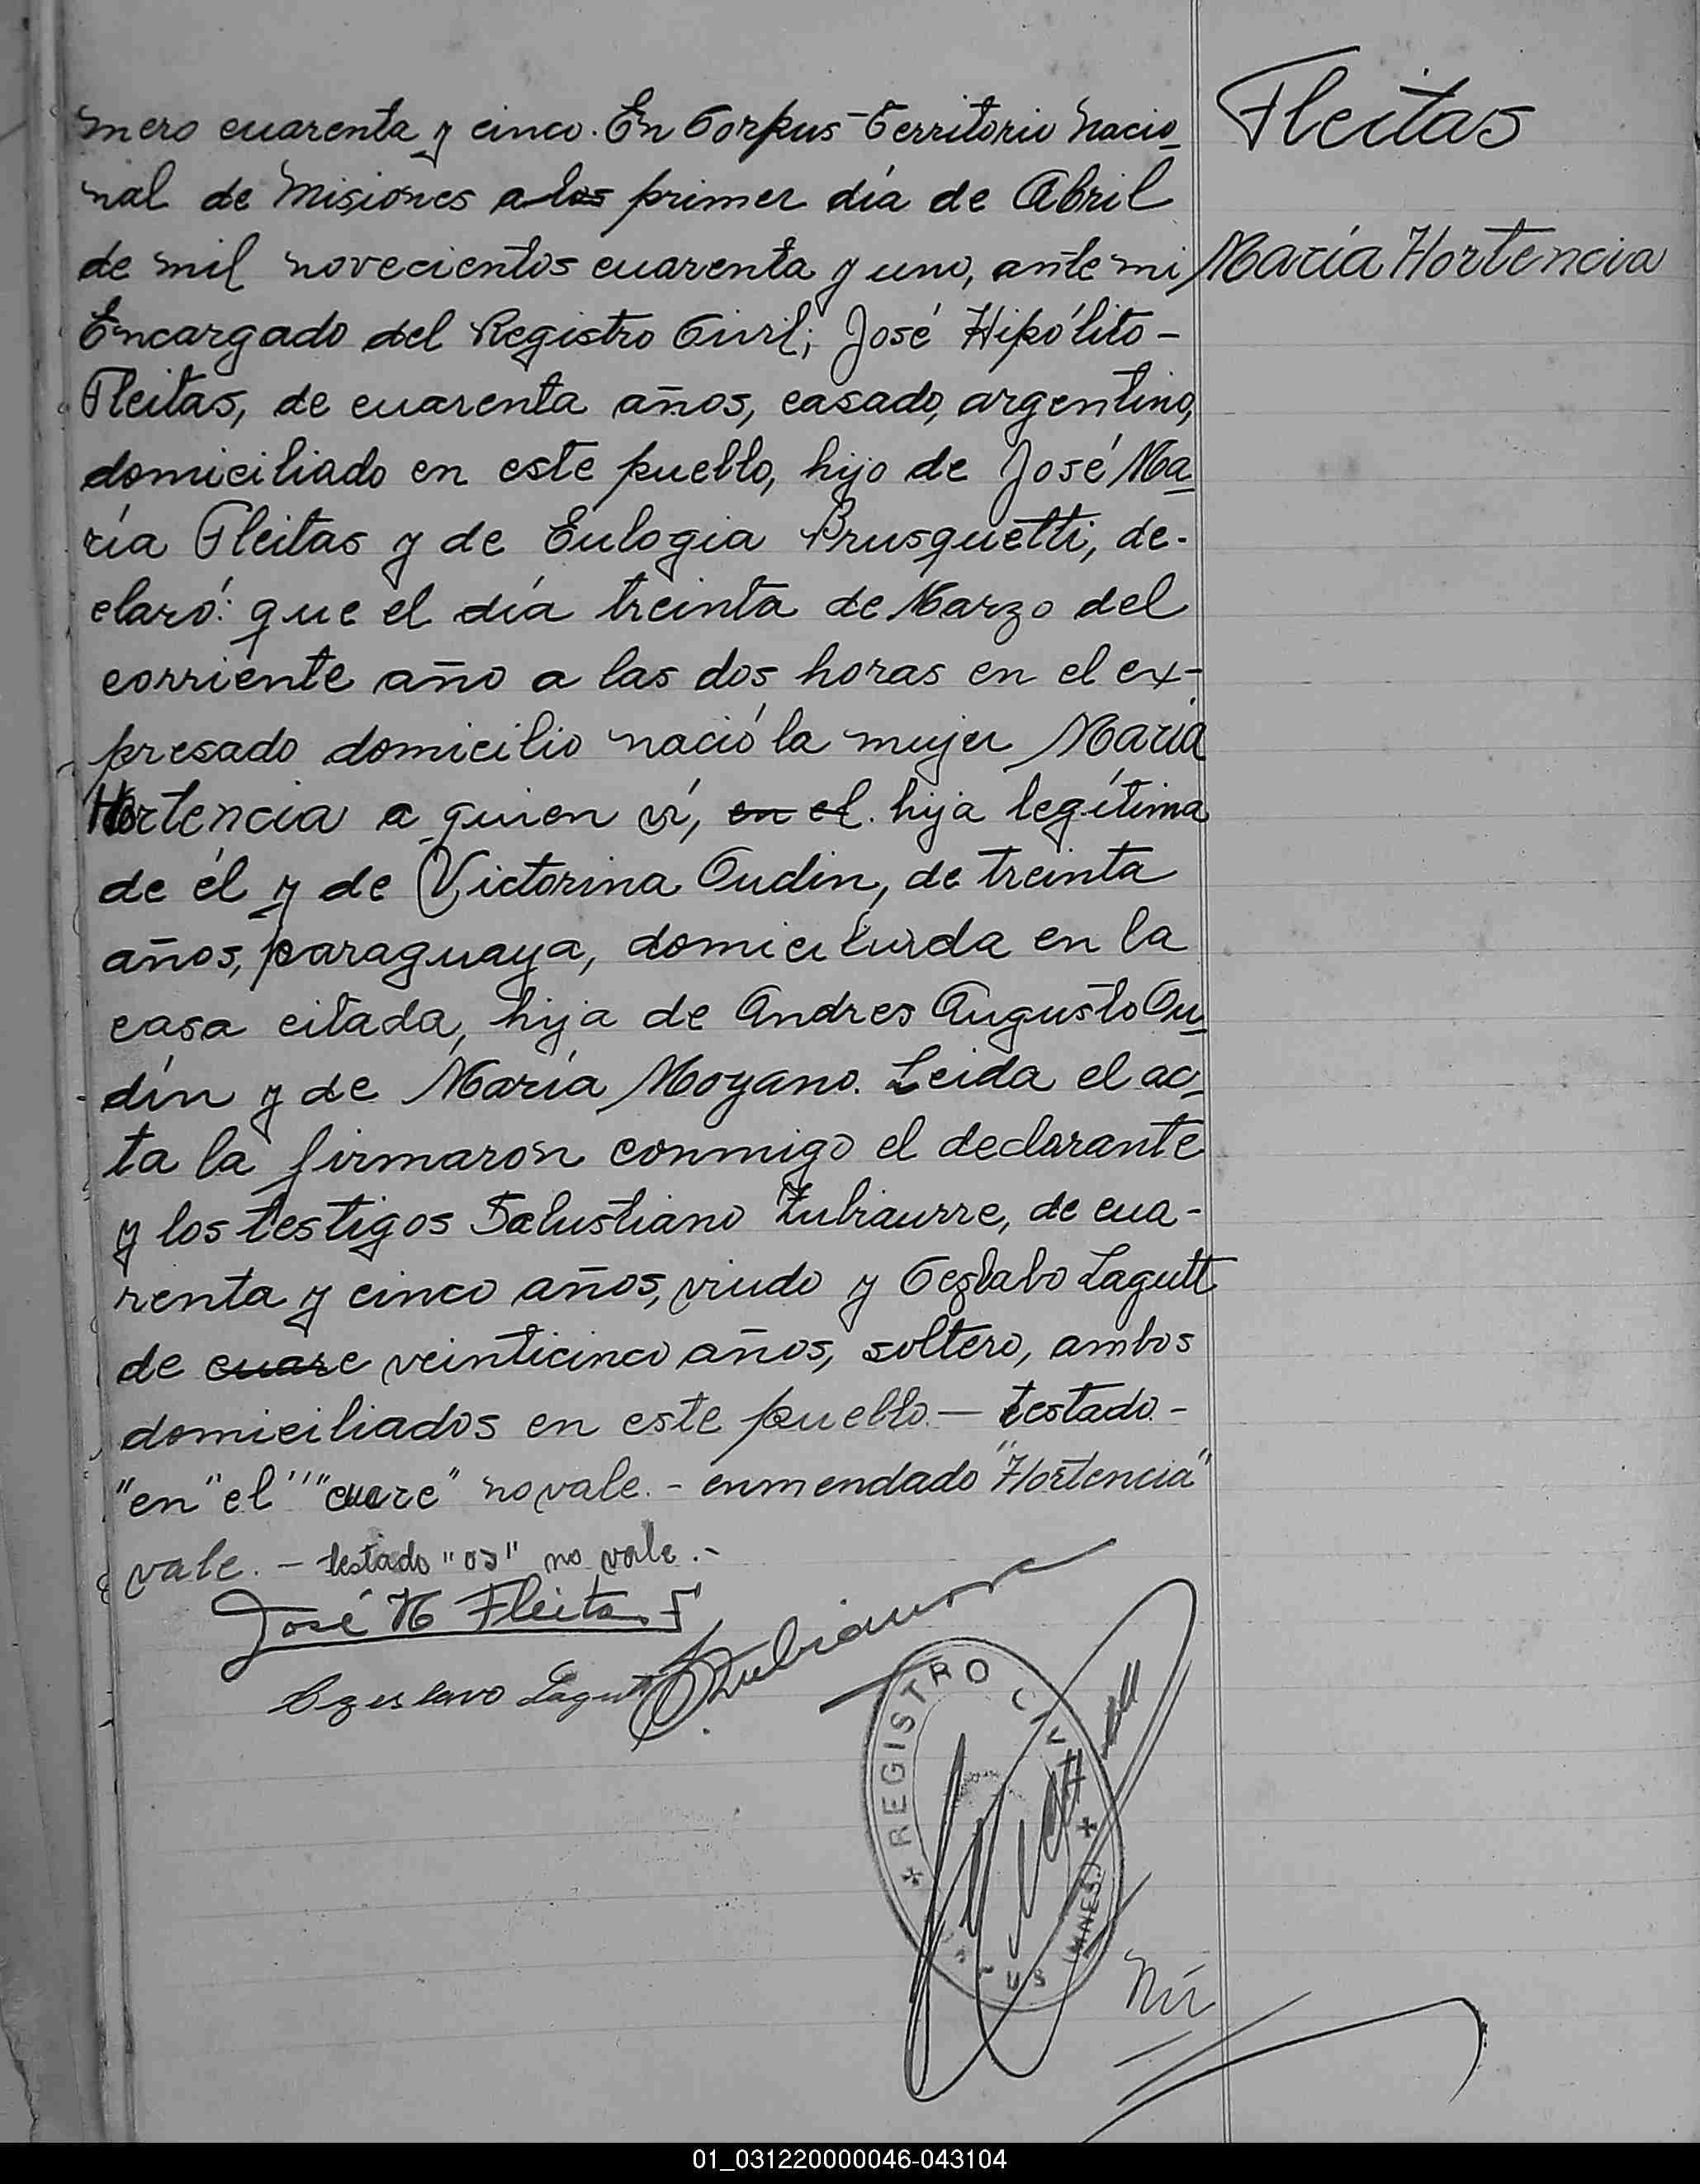 mero cuarenta y cinco. En Corpus - Territorio Nacio-
nal de Misiones a los primer día de Abril
de mil novecientos cuarenta y uno, ante mi
Encargado del Registro Civil; José Hipólito -
Fleitas, de cuarenta años, casado, argentino,
domiciliado en este pueblo, hijo de José Ma-
ría Fleitas y de Eulogia Brusquetti, de-
claró: que el día treinta de Marzo del
corriente año a las dos horas en el ex-
presado domicilio nació la mujer María
Hortencia a quien ví, en el. hija legítima
de él y de Victorina Oudin, de treinta
años, paraguaya, domiciliada en la
casa citada, hija de Andres Augusto Ou-
dín y de María Moyano. Leida el ac-
ta la firmaron conmigo el declarante
y los testigos Salustiano Zubiaurre, de cua-
renta y cinco años, viudo y Ceslabo Lagutt
de cuare veinticinco años, soltero, ambos
domiciliados en este pueblo. — testado. -
"en" el" "cuare" no vale. - enmendado "Hortencia"
vale. - testado "os" no vale. -
José H Fleitas
Zubiaurre
Czeslavo Lagutt
REGISTRO CIVIL
US (MNES)
Fleitas
María Hortencia
01_031220000046-043104